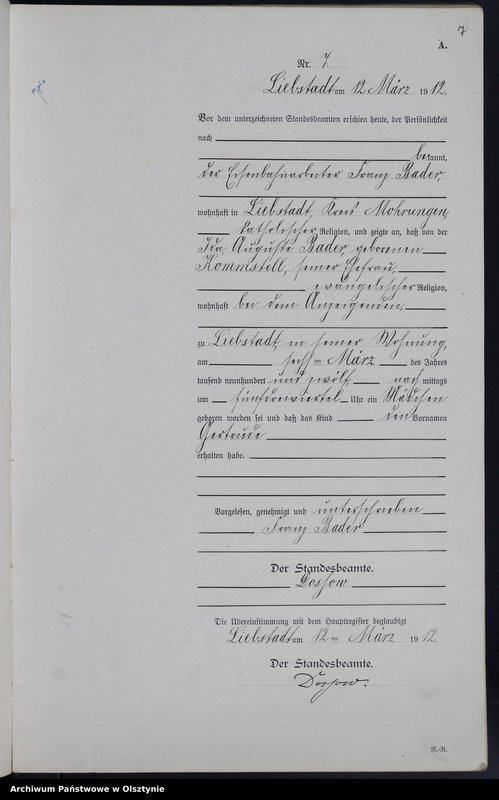 7
A.
Nr. 7.
Liebstadt am 12 März 1912.
Vor dem unterzeichneten Standesbeamten erschien heute, der Persönlichkeit
nach
bekannt,
der Eisenbahnarbeiter Franz Bader,
wohnhaft in Liebstadt, Kreis Mohrungen,
katholischer Religion, und zeigte an, daß von der
Ida Auguste Bader, geborenen
Kommstell, seiner Ehefrau,
evangelischer Religion,
wohnhaft bei dem Anzeigenden,
zu Liebstadt, in seiner Wohnung,
am sechsten März des Jahres
tausend neunhundert und zwölf nachmittags
um fünfdreiviertel Uhr ein Mädchen
geboren worden sei und daß das Kind den Vornamen
Gertrude
erhalten habe.
Vorgelesen, genehmigt und unterschrieben
Franz Bader
Der Standesbeamte.
Dossow
Die Übereinstimmung mit dem Hauptregister beglaubigt
Liebstadt am 12 ten März 1912.
Der Standesbeamte.
Dossow.
N.-R.
Archiwum Państwowe w Olsztynie